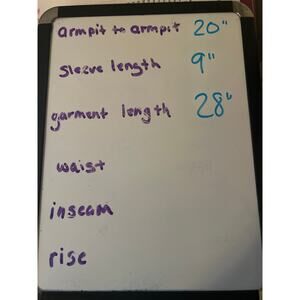 armpit to armpit 20"
sleeve length 9"
garment length 28"
waist
inseam
rise